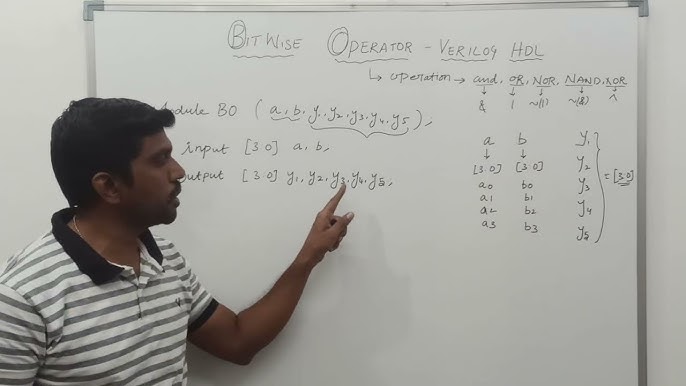 BITWISE OPERATOR - VERILOG HDL
↳ operation → and, OR, NOR, NAND, XOR
↓ ↓ ↓ ↓ ↓
& | ~(|) ~(&) ^
module BO (a, b, y1, y2, y3, y4, y5);
input [3:0] a, b;
output [3:0] y1, y2, y3, y4, y5;
a b y1
↓ ↓
[3:0] [3:0] y2
a0 b0 y3 = [3:0]
a1 b1
a2 b2 y4
a3 b3 y5